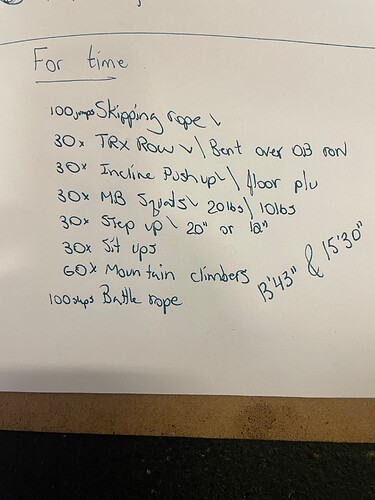 For time
100 jumps Skipping rope \
30x TRX Row \ Bent over DB row
30x Incline Push up \ floor p/u
30x MB Squats \ 20lbs / 10lbs
30x Step up \ 20" or 12"
30x Sit ups
60x Mountain climbers
100 Battle rope
13'43" & 15'30"